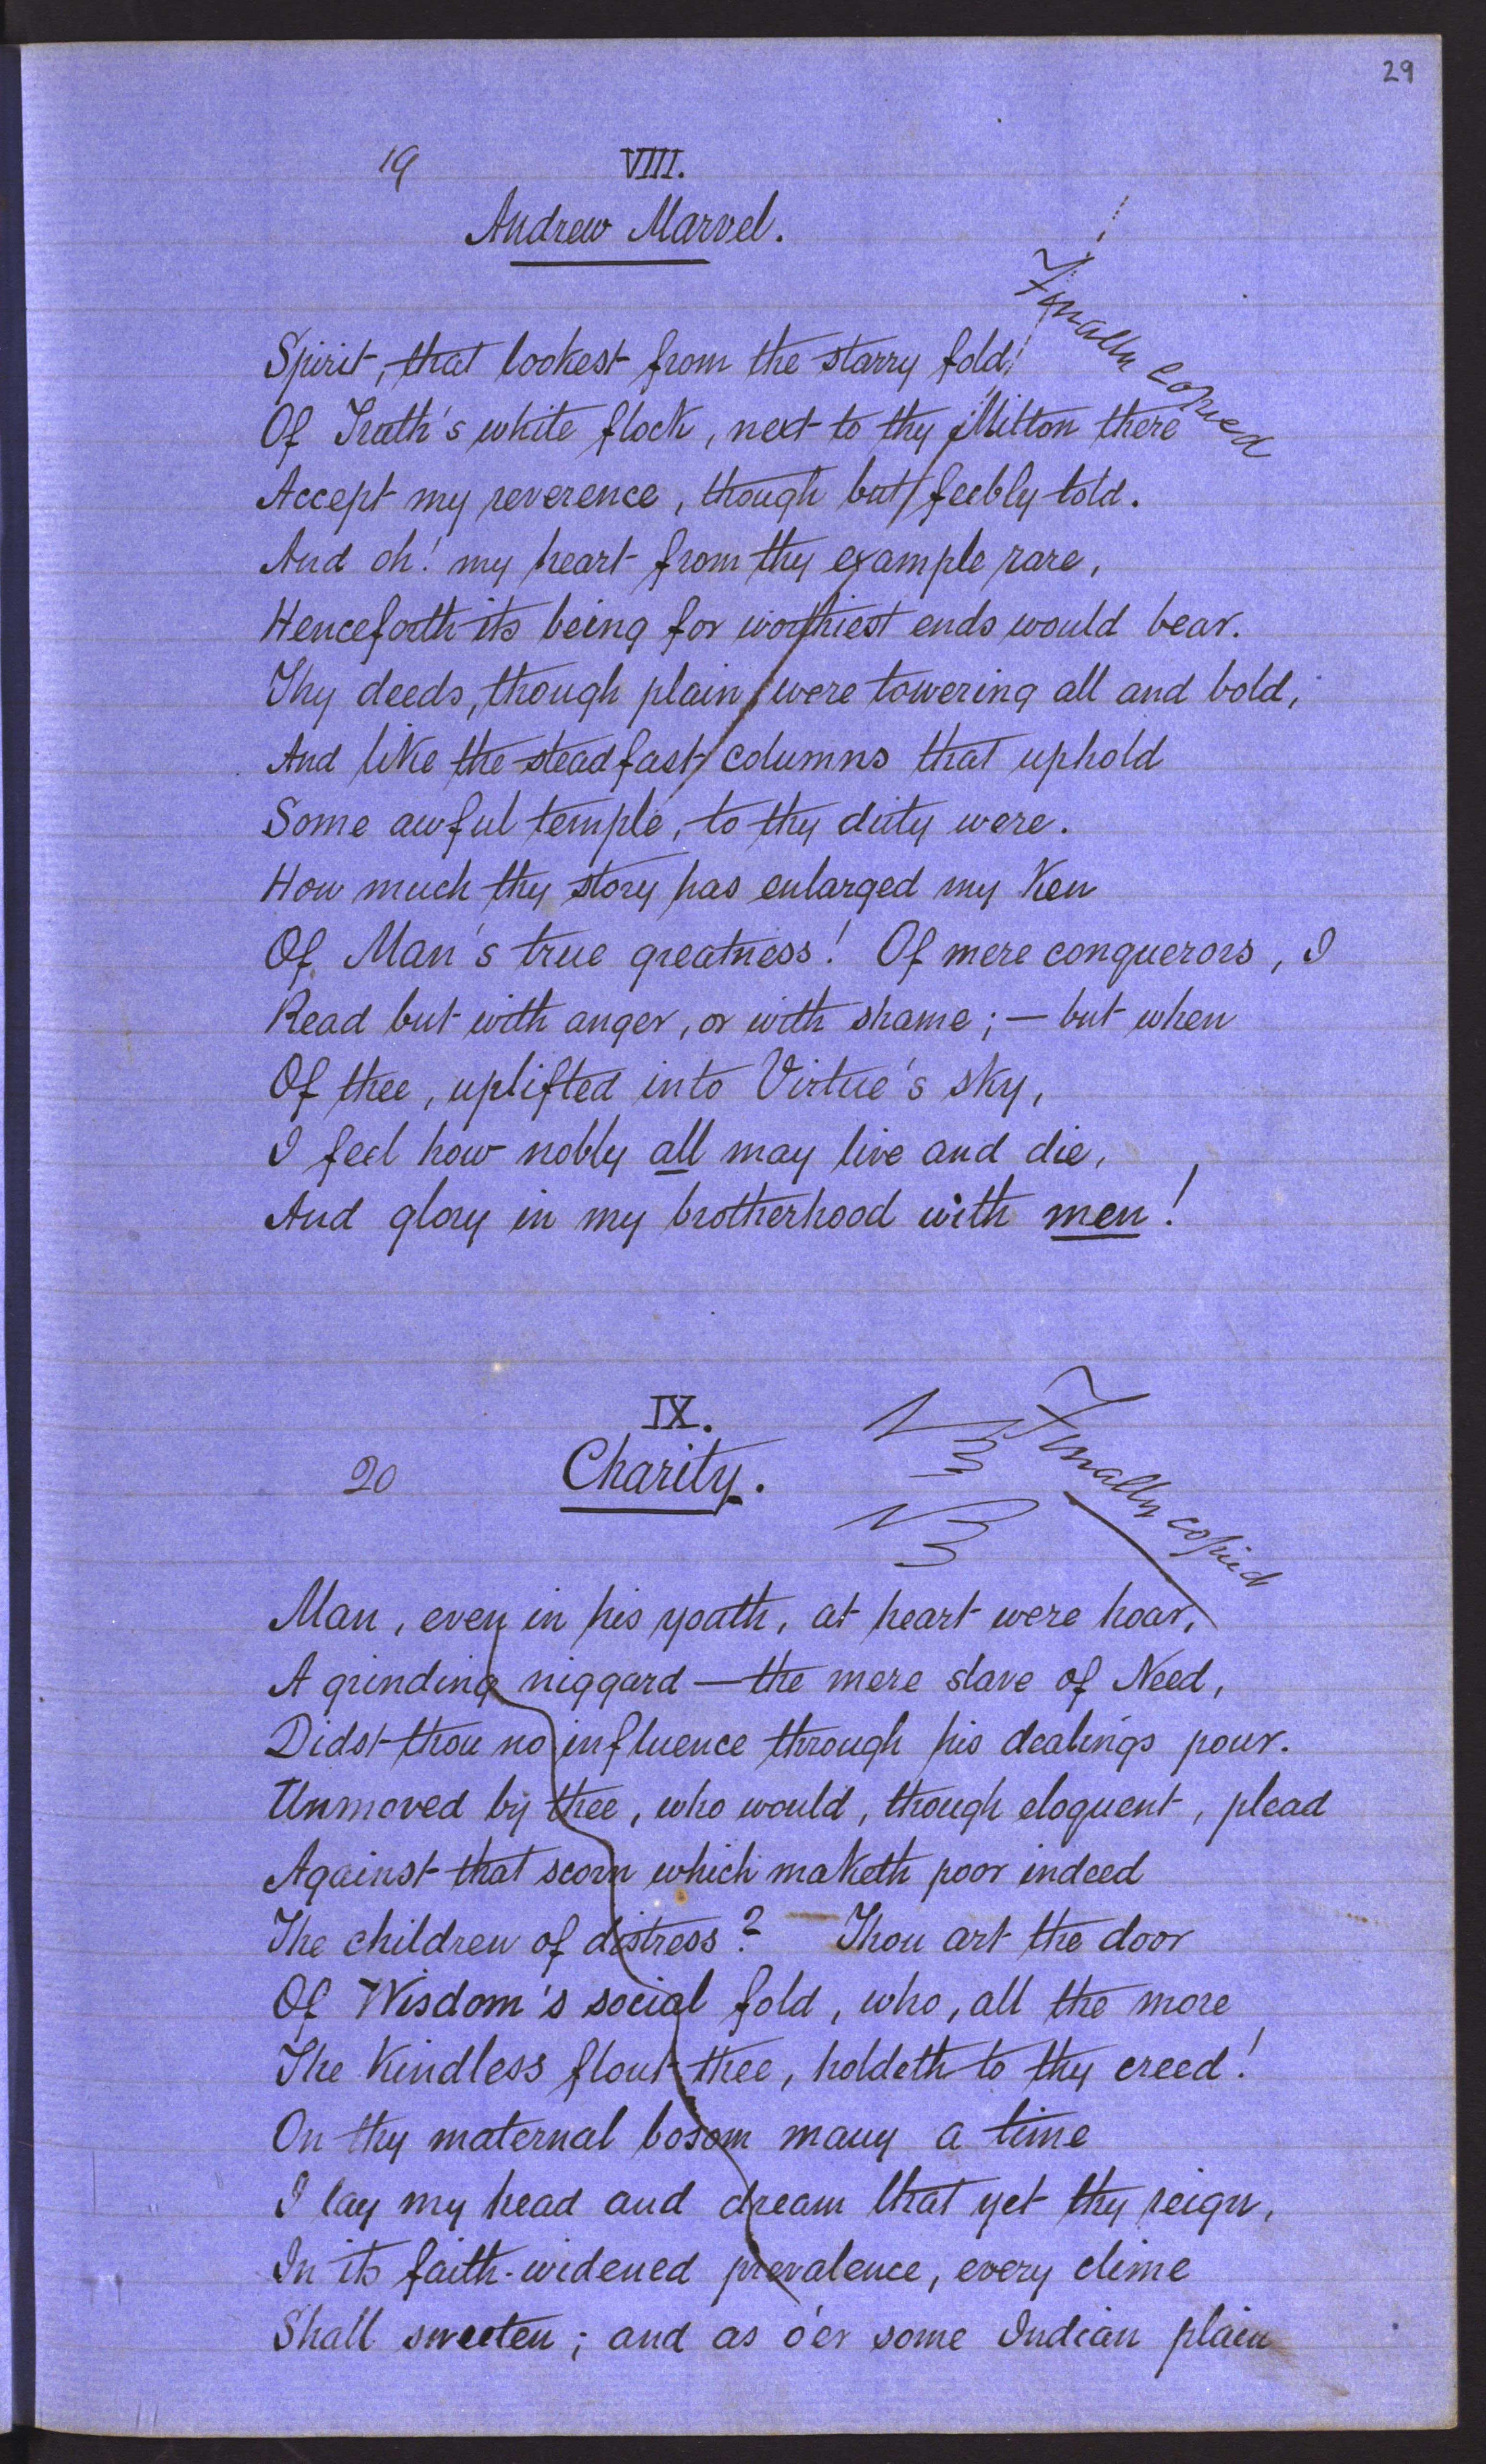 29
19 VIII.
Andrew Marvel.
Finally copied
Spirit, that lookest from the starry fold
Of Truth's white flock, next to thy Milton there
Accept my reverence, though but feebly told.
And oh! my heart from thy example rare,
Henceforth its being for worthiest ends would bear.
Thy deeds, though plain, were towering all and bold,
And like the steadfast columns that uphold
Some awful temple, to thy duty were.
How much thy story has enlarged my Ken
Of Man's true greatness! Of mere conquerors, I
Read but with anger, or with shame; — but when
Of thee, uplifted into Virtue's sky,
I feel how nobly all may live and die,
And glory in my brotherhood with men!
IX.
20 Charity.
NB
NB
Finally copied
Man, even in his youth, at heart were hoar,
A grinding niggard — the mere slave of Need,
Didst thou no influence through his dealings pour.
Unmoved by thee, who would, though eloquent, plead
Against that scorn which maketh poor indeed
The children of distress? Thou art the door
Of Wisdom's social fold, who, all the more
The Kindless flout thee, holdeth to thy creed!
On thy maternal bosom many a time
I lay my head and dream that yet thy reign,
In its faith-widened prevalence, every clime
Shall sweeten; and as o'er some Indian plain